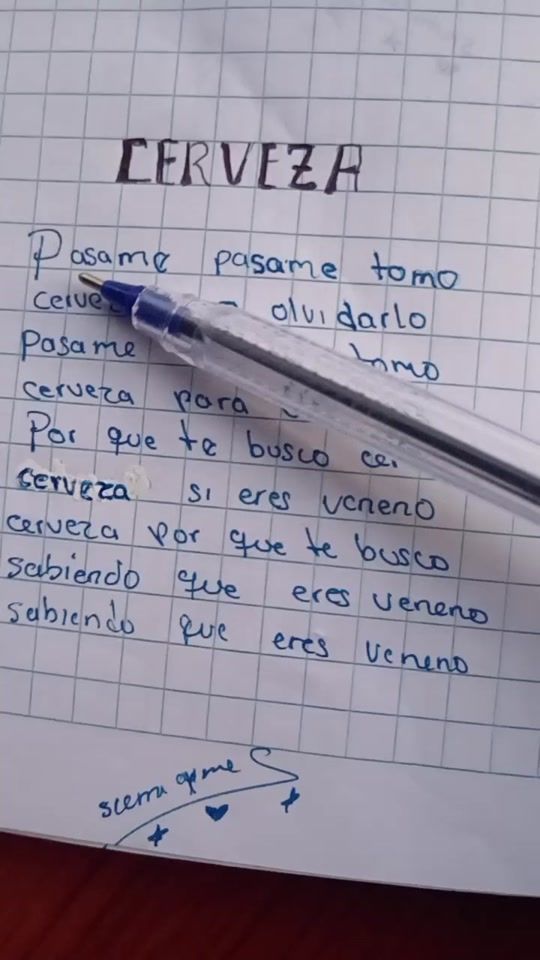 CERVEZA
Pasame pasame tomo
olvidarlo
Pasame
cerveza para
Por que te busco
cerveza si eres veneno
cerveza por que te busco
sabiendo que eres veneno
sabiendo que eres veneno